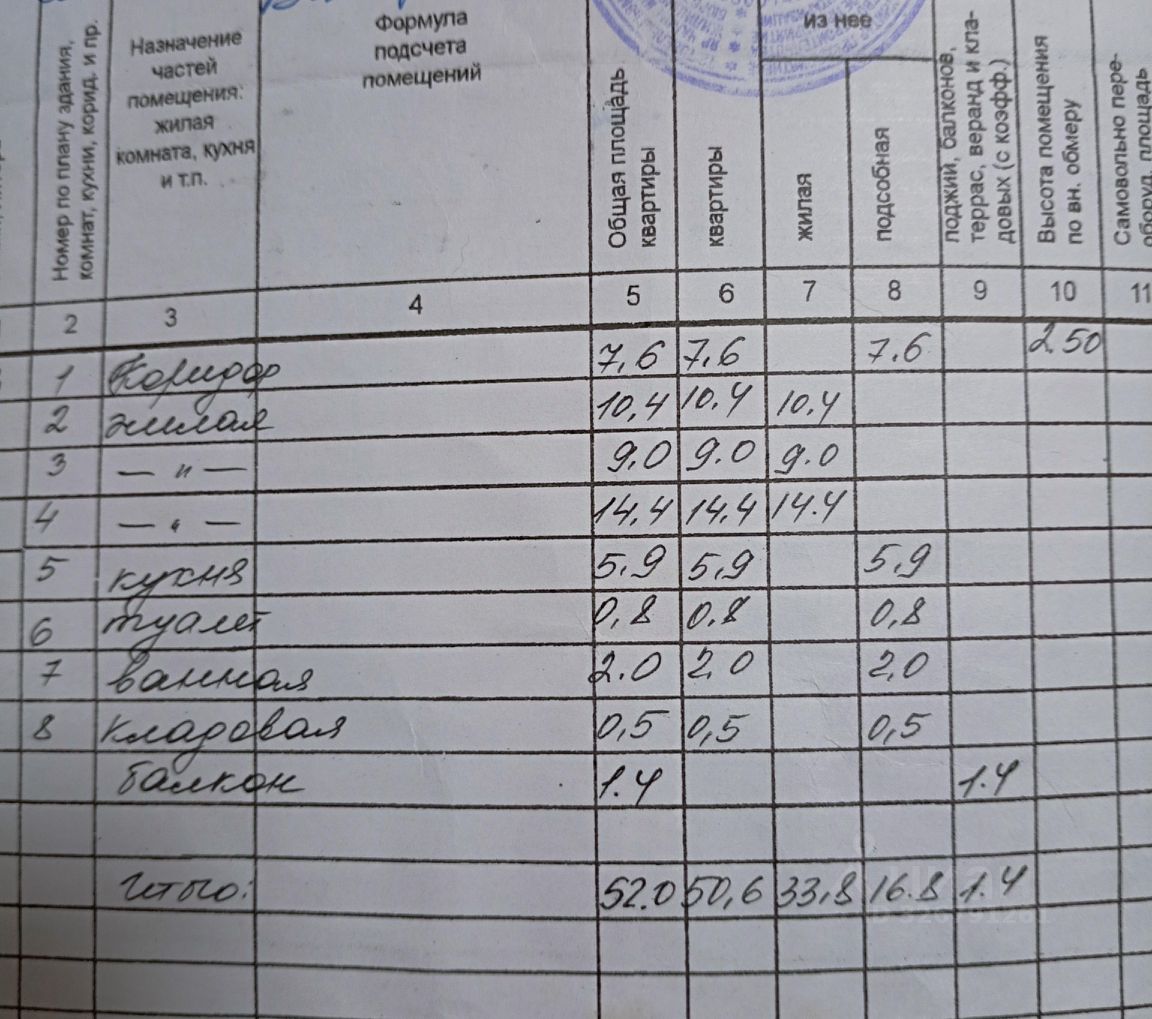 Номер по плану здания,
комнат, кухни, корид. и пр.
Назначение
частей
помещения:
жилая
комната, кухня
и т.п.
Формула
подсчета
помещений
Общая площадь
квартиры
из нее
квартиры
жилая
подсобная
лоджий, балконов,
террас, веранд и кла-
довых (с коэфф.)
Высота помещения
по вн. обмеру
Самовольно пере-
оборуд. площадь
2 3 4 5 6 7 8 9 10 11
1 Коридор 7,6 7,6 7.6 2 50
2 жилая 10,4 10.4 10.4
3 — и — 9.0 9.0 9.0
4 — " — 14,4 14,4 14.4
5 кухня 5,9 5,9 5,9
6 туалет 0,8 0,8 0,8
7 ванная 2.0 2,0 2,0
8 кладовая 0,5 0,5 0,5
балкон 1.4 1.4
Итого: 52.0 50,6 33,8 16.8 1.4